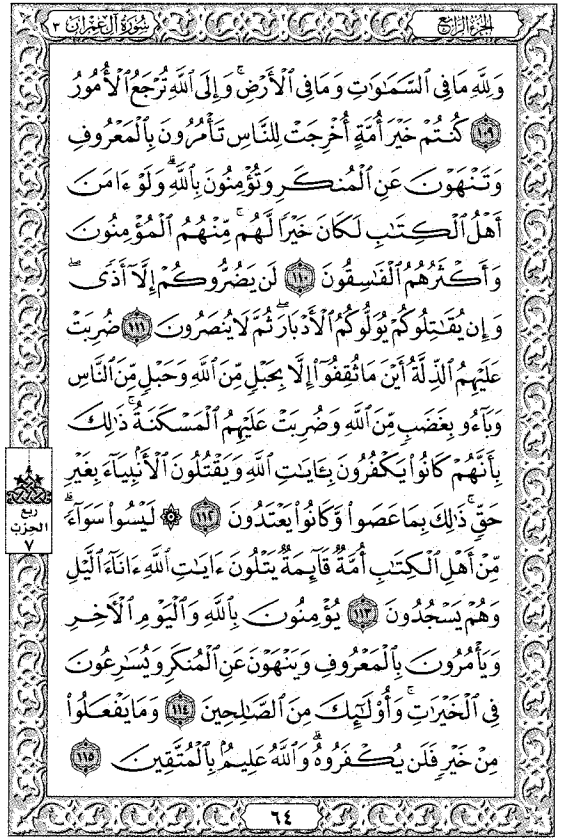 سُورَةُ آلِ عِمْرَان ٣
الجُزْءُ الرَّابِعُ
وَلِلَّهِ مَا فِي ٱلسَّمَٰوَٰتِ وَمَا فِي ٱلْأَرْضِ ۚ وَإِلَى ٱللَّهِ تُرْجَعُ ٱلْأُمُورُ
١٠٩ كُنتُمْ خَيْرَ أُمَّةٍ أُخْرِجَتْ لِلنَّاسِ تَأْمُرُونَ بِٱلْمَعْرُوفِ
وَتَنْهَوْنَ عَنِ ٱلْمُنكَرِ وَتُؤْمِنُونَ بِٱللَّهِ ۗ وَلَوْ ءَامَنَ
أَهْلُ ٱلْكِتَٰبِ لَكَانَ خَيْرًا لَّهُم ۚ مِّنْهُمُ ٱلْمُؤْمِنُونَ
وَأَكْثَرُهُمُ ٱلْفَٰسِقُونَ ١١٠ لَن يَضُرُّوكُمْ إِلَّآ أَذًى ۖ
وَإِن يُقَٰتِلُوكُمْ يُوَلُّوكُمُ ٱلْأَدْبَارَ ثُمَّ لَا يُنصَرُونَ ١١١ ضُرِبَتْ
عَلَيْهِمُ ٱلذِّلَّةُ أَيْنَ مَا ثُقِفُوٓا۟ إِلَّا بِحَبْلٍ مِّنَ ٱللَّهِ وَحَبْلٍ مِّنَ ٱلنَّاسِ
وَبَآءُو بِغَضَبٍ مِّنَ ٱللَّهِ وَضُرِبَتْ عَلَيْهِمُ ٱلْمَسْكَنَةُ ۚ ذَٰلِكَ
بِأَنَّهُمْ كَانُوا۟ يَكْفُرُونَ بِـَٔايَٰتِ ٱللَّهِ وَيَقْتُلُونَ ٱلْأَنۢبِيَآءَ بِغَيْرِ
حَقٍّ ۚ ذَٰلِكَ بِمَا عَصَوا۟ وَّكَانُوا۟ يَعْتَدُونَ ١١٢ ۞ لَيْسُوا۟ سَوَآءً ۗ
مِّنْ أَهْلِ ٱلْكِتَٰبِ أُمَّةٌ قَآئِمَةٌ يَتْلُونَ ءَايَٰتِ ٱللَّهِ ءَانَآءَ ٱلَّيْلِ
وَهُمْ يَسْجُدُونَ ١١٣ يُؤْمِنُونَ بِٱللَّهِ وَٱلْيَوْمِ ٱلْءَاخِرِ
وَيَأْمُرُونَ بِٱلْمَعْرُوفِ وَيَنْهَوْنَ عَنِ ٱلْمُنكَرِ وَيُسَٰرِعُونَ
فِي ٱلْخَيْرَٰتِ ۚ وَأُو۟لَٰٓئِكَ مِنَ ٱلصَّٰلِحِينَ ١١٤ وَمَا يَفْعَلُوا۟
مِنْ خَيْرٍ فَلَن يُكْفَرُوهُ ۗ وَٱللَّهُ عَلِيمٌۢ بِٱلْمُتَّقِينَ ١١٥
ربع
الحزب
٧
٦٤